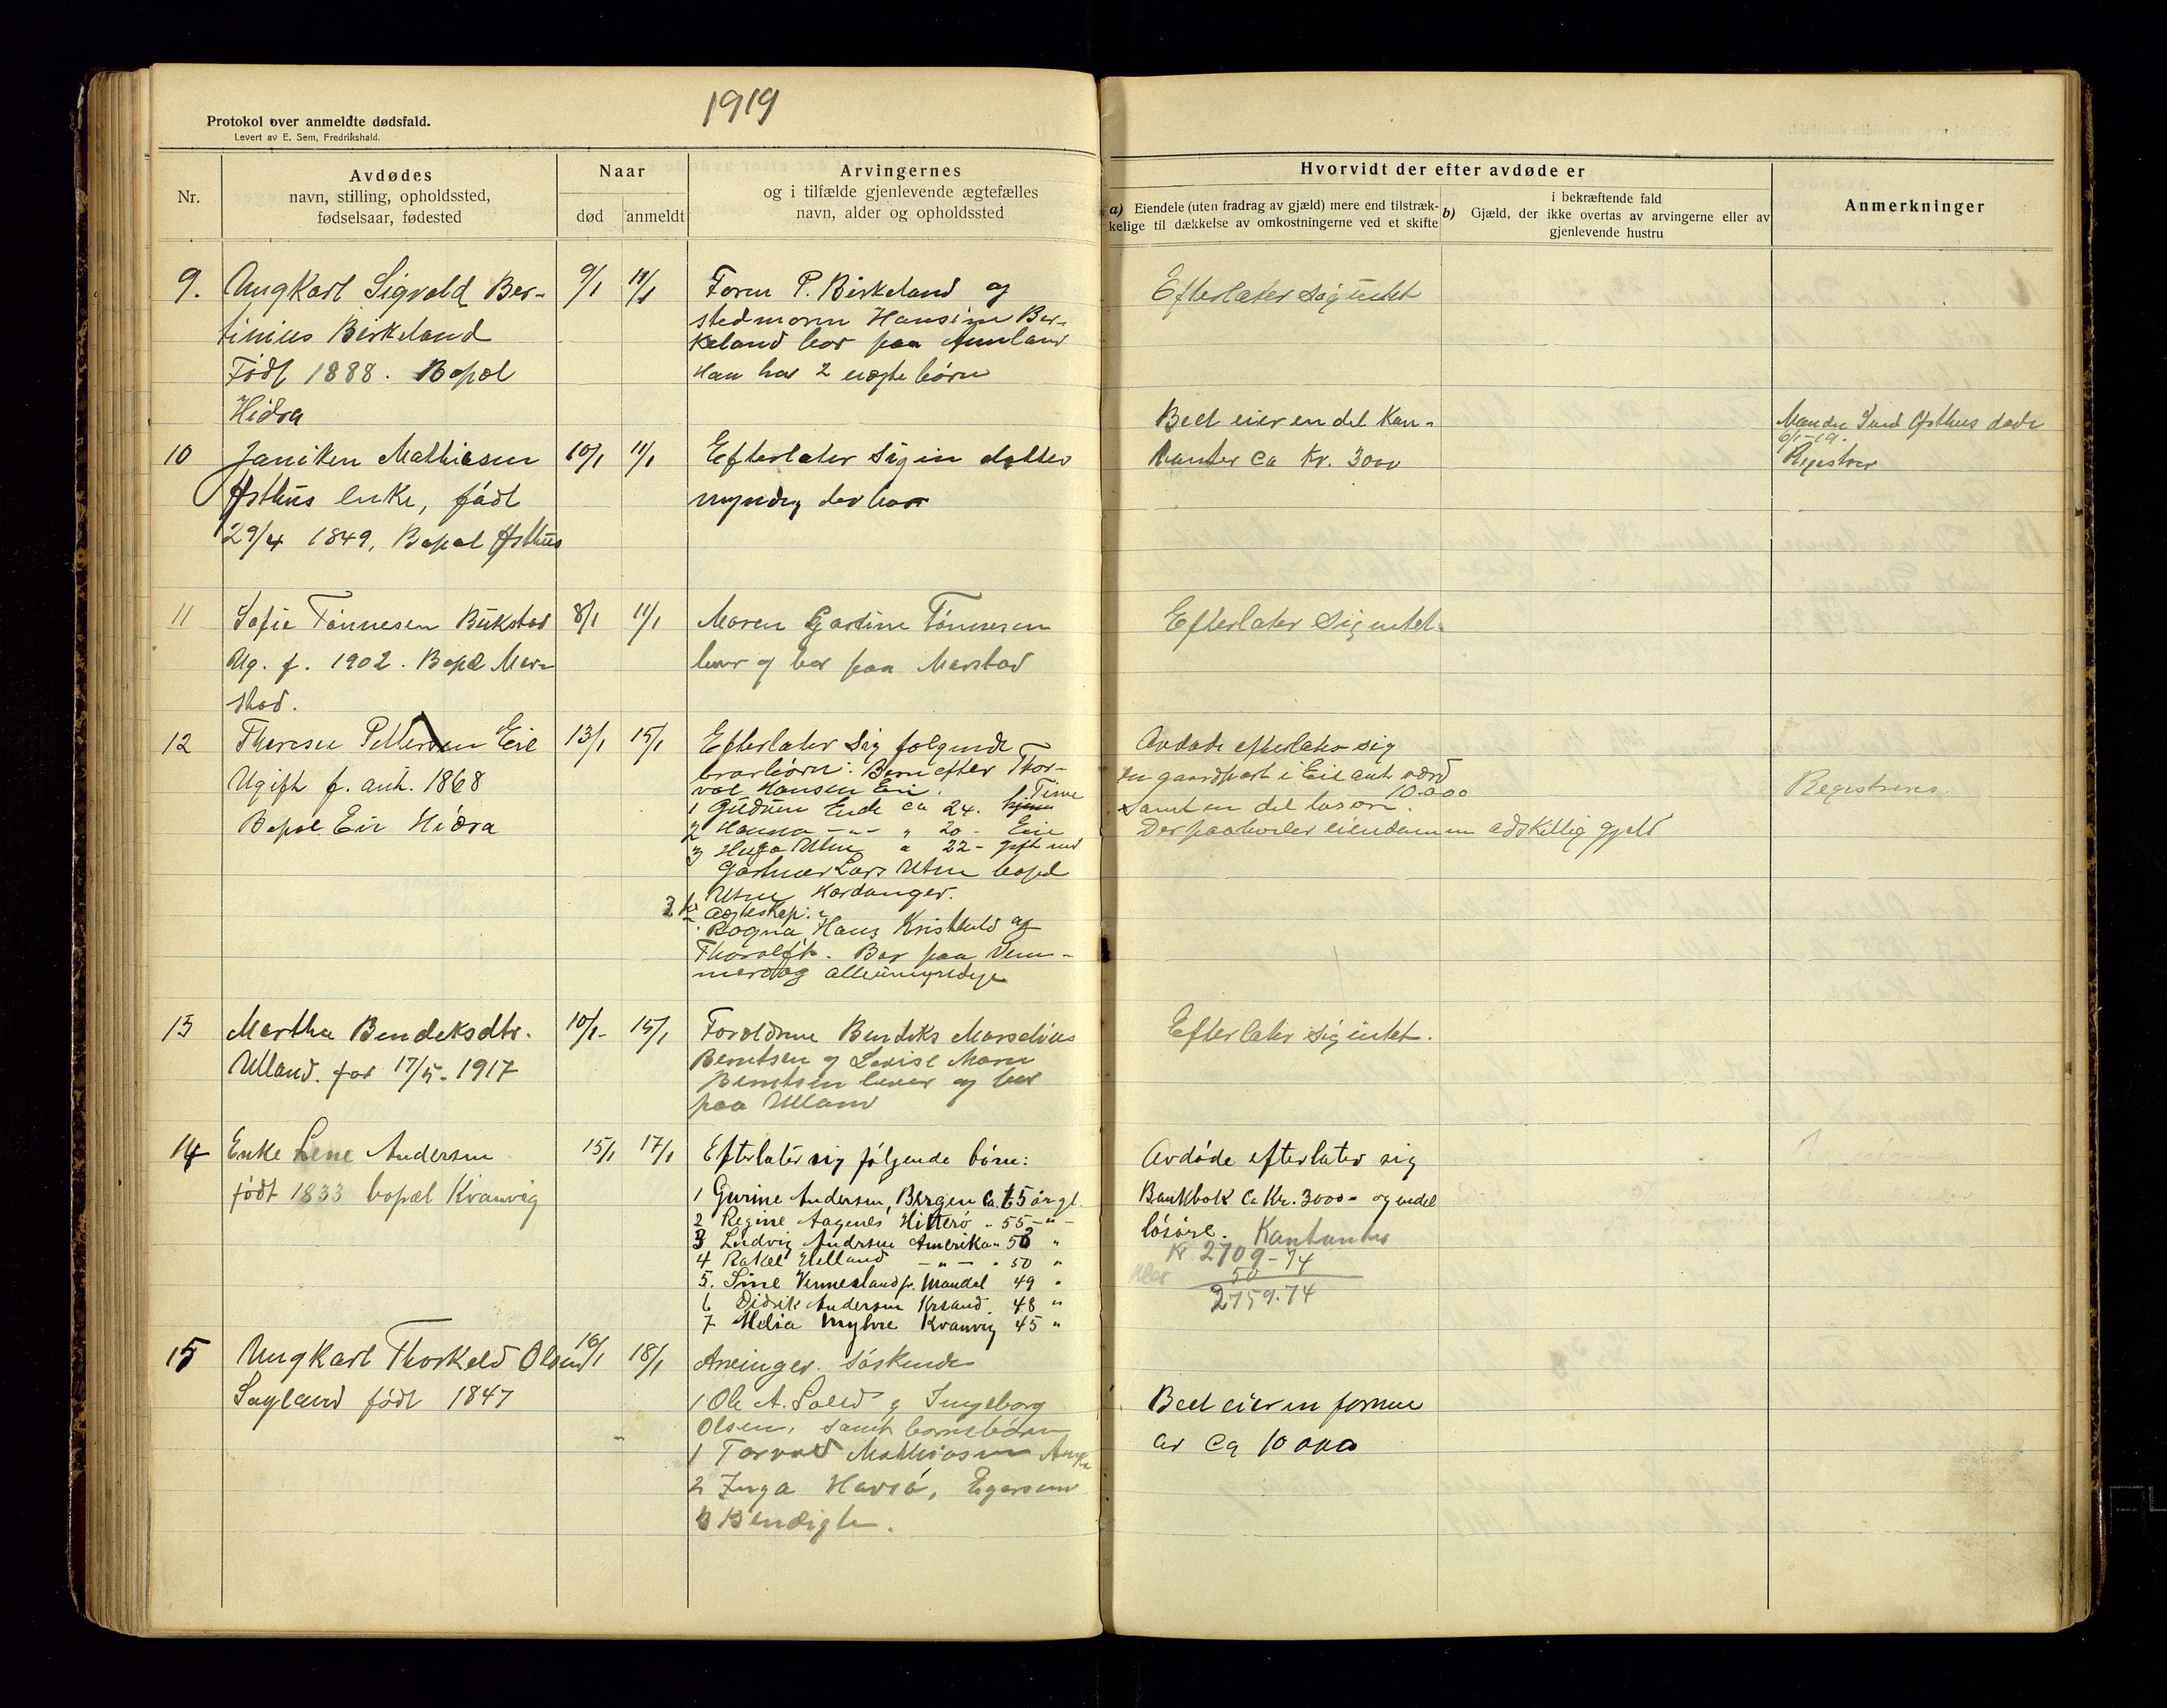 1919
Protokol over anmeldte dødsfald.
Levert av E. Sem, Fredrikshald.
Nr.
Avdødes
navn, stilling, opholdssted,
fødselsaar, fødested
Naar
død
anmeldt
Arvingernes
og i tilfælde gjenlevende ægtefælles
navn, alder og opholdssted
Hvorvidt der efter avdøde er
a) Eiendele (uten fradrag av gjæld) mere end tilstræk-
kelige til dækkelse av omkostningerne ved et skifte
b) i bekræftende fald
Gjæld, der ikke overtas av arvingerne eller av
gjenlevende hustru
Anmerkninger
9. Ungkarl Sigvald Ber-
tinius Birkeland
Født 1888. Bopæl
Hidra
9/1 11/1
Faren P. Birkeland og
stedmoren Hansine Bir-
keland bor paa
Han har 2 uægte børn
Efterlater sig intet
10 Janiken Mathiasen
Østhus enke, født
29/4 1849, Bopæl Østhus
10/1 11/1
Efterlater sig en datter
myndig der bor
Boet eier en del kon-
tanter ca Kr. 3000
Østhus døde
6/1-19.
Registrer
11 Sofie Tønnesen Bukstad
Ug. f. 1902. Bopæl Mar-
stad.
8/1 11/1
Maren Gardine Tønnesen
lever og bor paa Marstad
Efterlater sig intet.
12 Therese Pettersen Eie
Ugift f. ant. 1868
Bopæl Eie Hidra
13/1 15/1
Efterlater sig følgende
brorbørn: Børn efter Thor-
val Hansen Eie.
1 Gudrun Eide ca 24. Time
2 Hanna - " - " 20 - Eie
3 Huga Utne " 22 - gift med
Gartner Lars Utne bopæl
Utne Hardanger.
2 ægteskap:
Ragna, Hans, Kristhild og
Thoralf. Bor paa Vem-
mestad og alle umyndige
Avdøde efterlater sig
en gaardpart i Eie ant. værd
10.000
samt en del løsøre.
Der paahviler eiendommen adskillig gjæld
Registreres.
13 Martha Bendeksdtr.
Ulland. før 17/5-1917
10/1- 15/1
Forældrene Bendiks Marselius
Berntsen og Lovise Marie
Berntsen lever og bor
paa Ulland
Efterlater sig intet.
14 Enke Lene Andersen
født 1833 bopæl Kvanvig
15/1 17/1
Efterlater sig følgende børn:
1 Gurine Andersen, Bergen ca. 65 år gl.
2 Regine Aagenes Hitterø - 55 - " -
3 Ludvig Andersen Amerika " 53 "
4 Rakel Helland - " - " 50 "
5. Sine Vennesland pr. Mandal 49 "
6 Didrik Andersen Krsand. 48 "
7 Melia Myhre Kvanvig 45 "
Avdøde efterlater sig
Bankbok ca Kr. 3000- og endel
løsøre. Kontanter
Kr. 2709-74
50
2759.74
15 Ungkarl Thorkeld Olsen
Sayland født 1847
16/1 18/1
Arvinger. Søskende
1 Ole A. Sold og Ingeborg
Olsen, samt
1 Torvald Mathiasen
2 Inga Havsø, Egersund
3 Bendigte.
Boet eier en formue
av ca 10 000